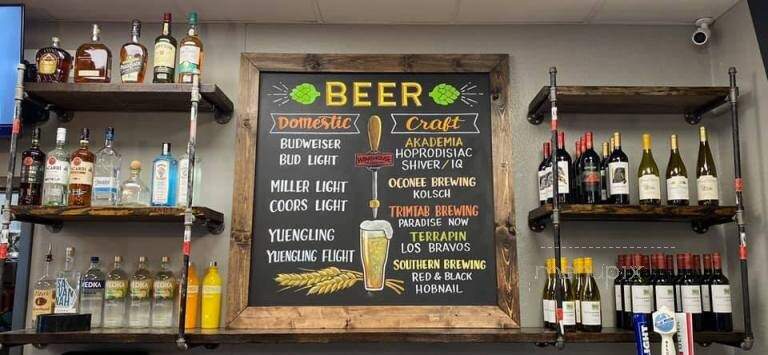 BEER
Domestic
BUDWEISER
BUD LIGHT
MILLER LIGHT
COORS LIGHT
YUENGLING
YUENGLING FLIGHT
Craft
AKADEMIA
HOPRODISIAC
SHIVER/IQ
OCONEE BREWING
KOLSCH
TRIMTAB BREWING
PARADISE NOW
TERRAPIN
LOS BRAVOS
SOUTHERN BREWING
RED & BLACK
HOBNAIL
WINGHOUSE
BACARDI
BACARDI
SAVANNAH
VODKA
VODKA
VODKA
VODKA
menupix